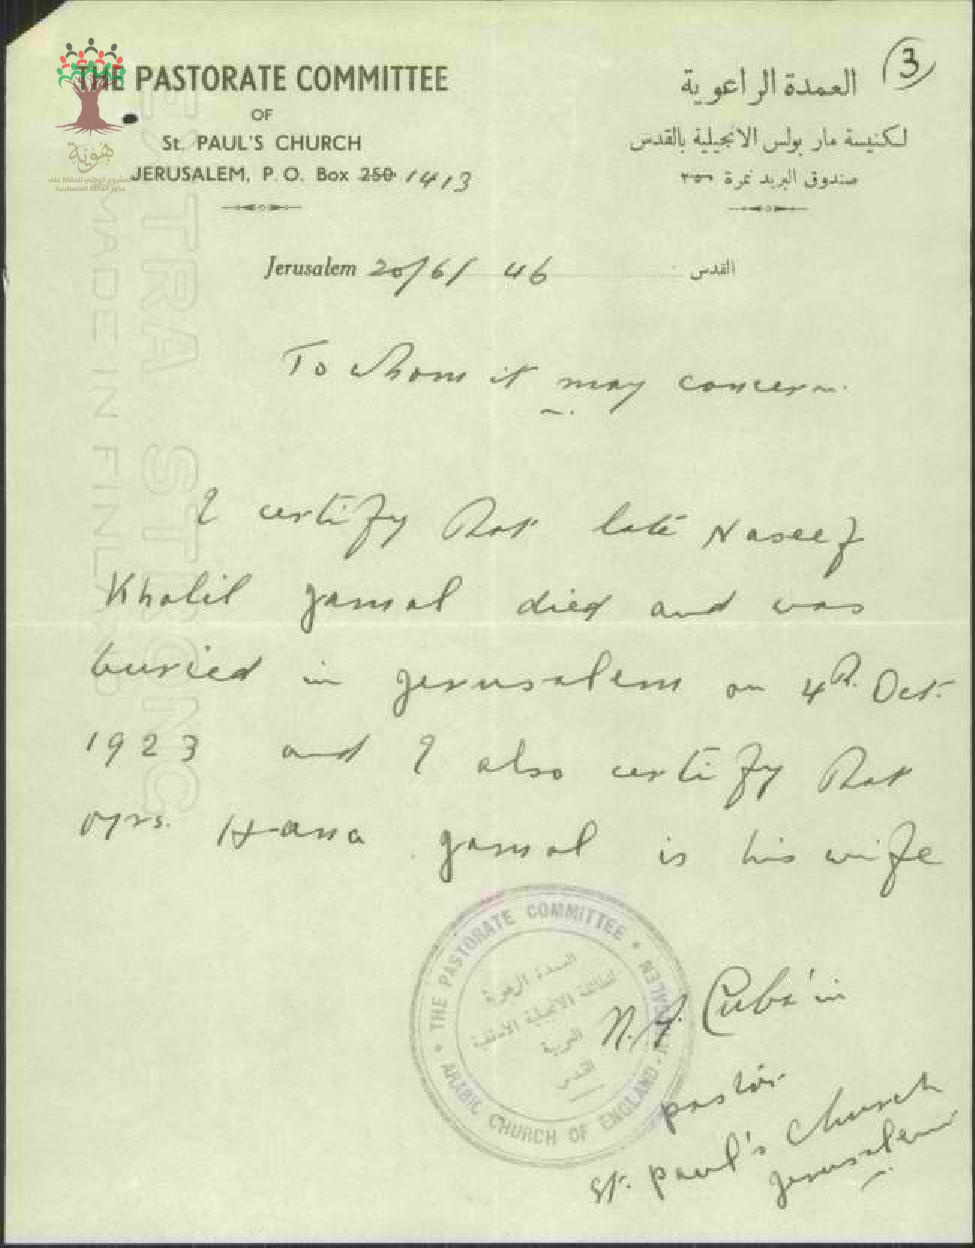 THE PASTORATE COMMITTEE
OF
St. PAUL'S CHURCH
JERUSALEM, P. O. Box 250 1413
العمدة الراعوية
لكنيسة مار بولس الانجيلية بالقدس
صندوق البريد نمرة ٢٥٠
3
هوية
Jerusalem 20/6/ 46 القدس
To whom it may concern.
I certify that late Naseef
Khalil Jamal died and was
buried in Jerusalem on 4th. Oct.
1923 and I also certify that
Mrs. Hana Jamal is his wife
• THE PASTORATE COMMITTEE • JERUSALEM
ARABIC CHURCH OF ENGLAND.
العمدة الرعوية
للطائفة الانجيلية الاسقفية
العربية
القدس
N. A. Cuba'in
pastor
St. Paul's Church
Jerusalem
EXTRA STRONG
MADE IN FINLAND